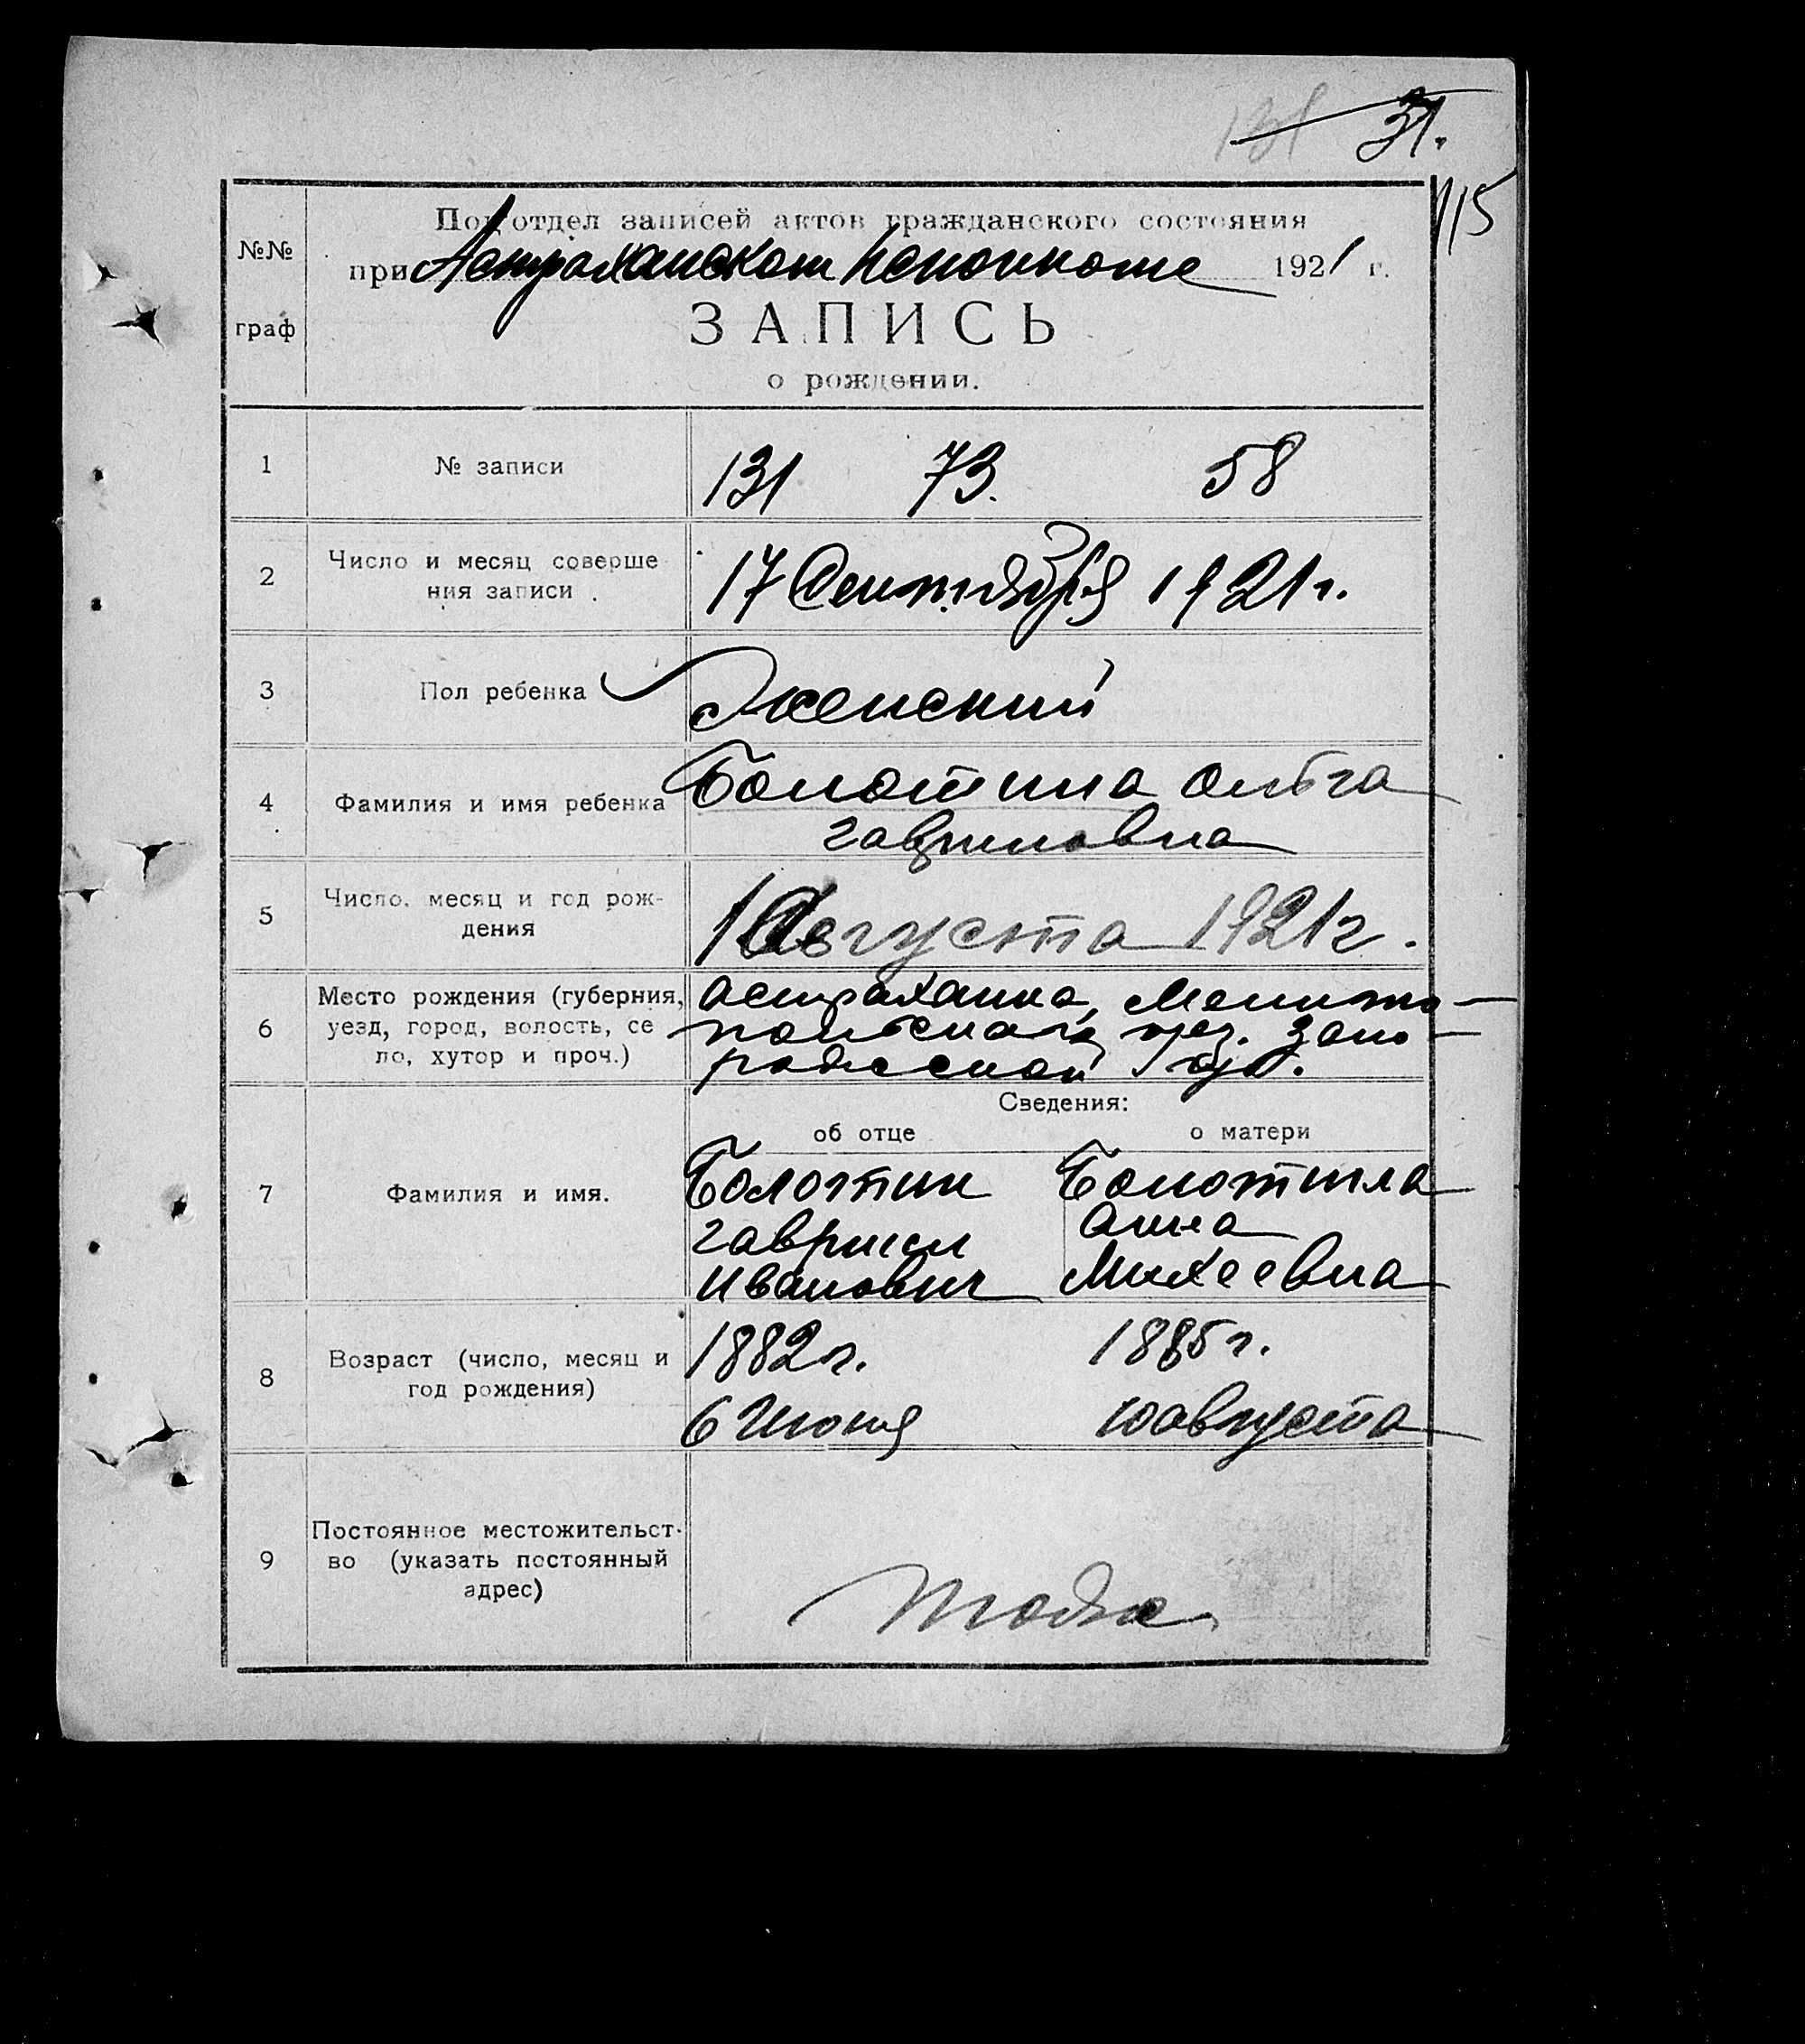 131 31.
115
Подотдел записей актов гражданского состояния
№№ при Астраханском Исполкоме 1921 г.
граф ЗАПИСЬ
о рождении.
1 № записи 131 73. 58
2 Число и месяц соверше
ния записи 17 Сентября 1921 г.
3 Пол ребенка Женский
4 Фамилия и имя ребенка Болотина Ольга
Гавриловна
5 Число, месяц и год рож-
дения 1 Августа 1921 г.
6 Место рождения (губерния,
уезд, город, волость, се
ло, хутор и проч.)
Астраханка, Мелито-
польского уез. Запо-
рожской губ.
Сведения:
об отце о матери
7 Фамилия и имя.
Болотин Болотина
Гавриил Анна
Иванович Михеевна
8 Возраст (число, месяц и
год рождения)
1882 г. 1885 г.
6 Июня 10 августа
9 Постоянное местожительст-
во (указать постоянный
адрес)
тоже